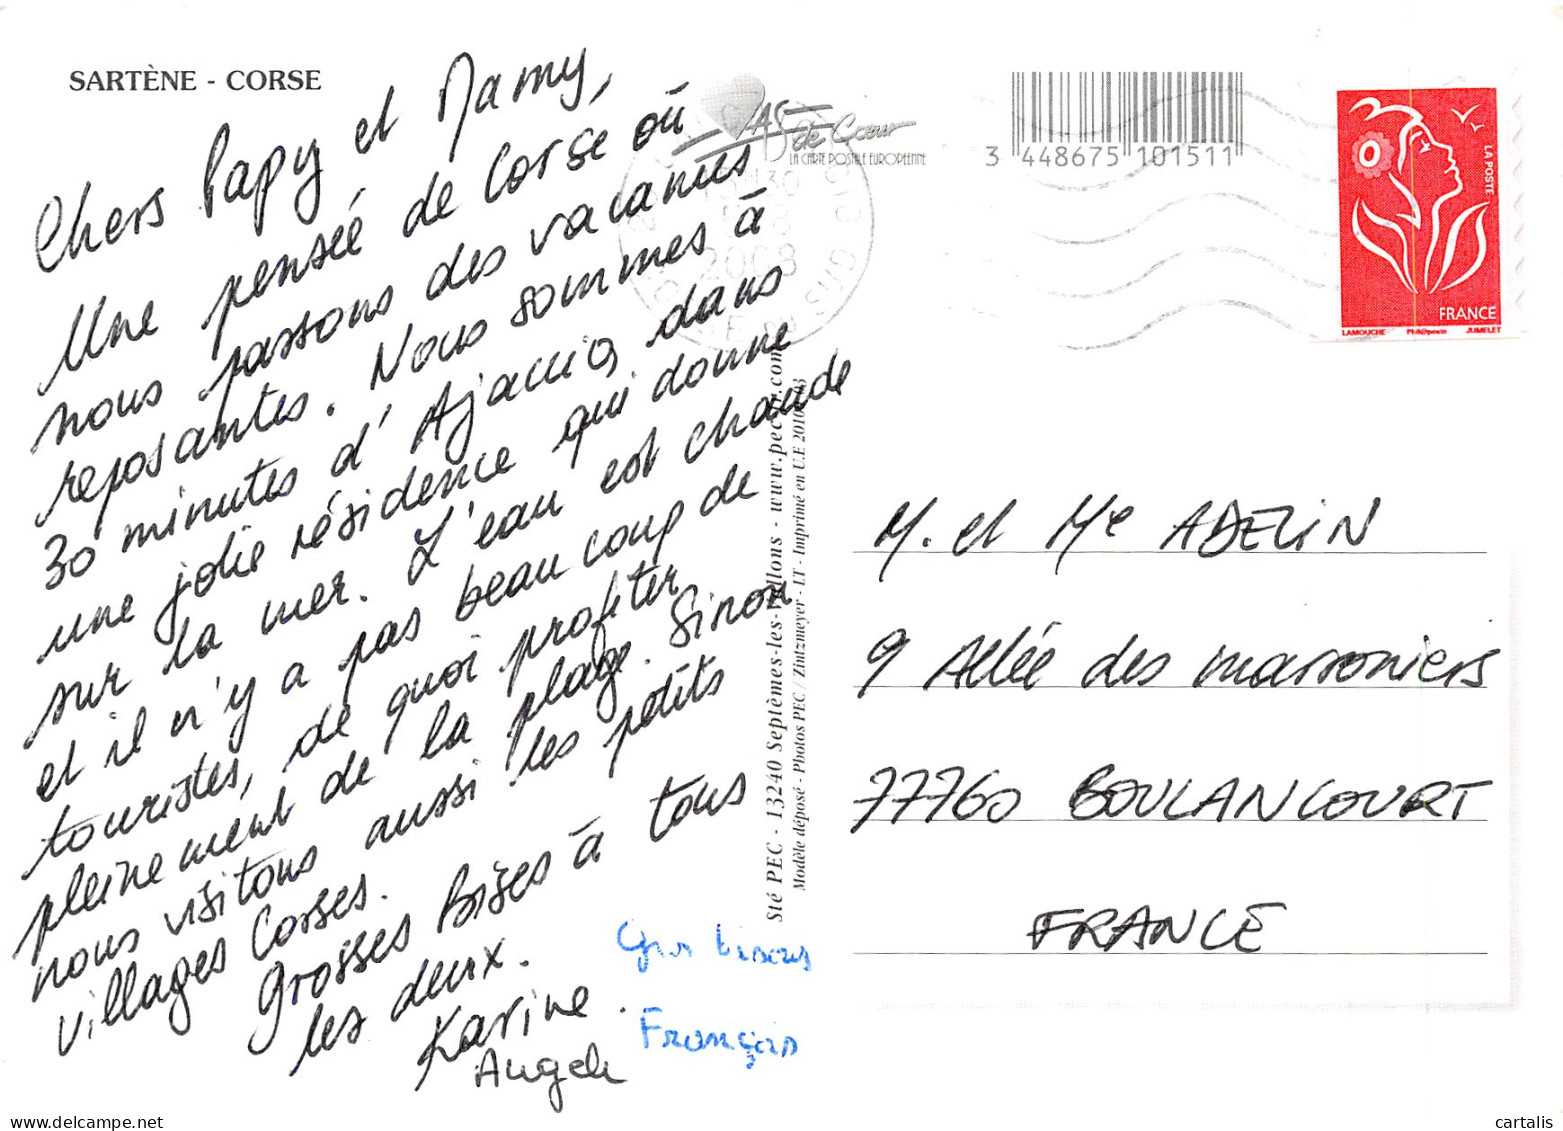 SARTÈNE - CORSE
Chers Papy et Mamy,
Une pensée de Corse où
nous passons des vacances
reposantes. Nous sommes à
30 minutes d'Ajaccio, dans
une jolie résidence qui donne
sur la mer. L'eau est chaude
et il n'y a pas beaucoup de
touristes, de quoi profiter
pleinement de la plage. Sinon
nous visitons aussi les petits
villages Corses.
Grosses bises à tous
les deux.
Karine.
Angele
Gros bisous
François
AS de Cœur
LA CARTE POSTALE EUROPEENNE
3 448675 101511
2008
LA POSTE
FRANCE
LAMOUCHE Phil@poste JUMELET
Sté PEC - 13240 Septèmes-les-Vallons - www.pec.com
Modèle déposé - Photos PEC / Zintzmeyer - LT - Imprimé en U.E
M. et Me ADELIN
9 Allée des marroniers
77760 BOULANCOURT
FRANCE
cartalis